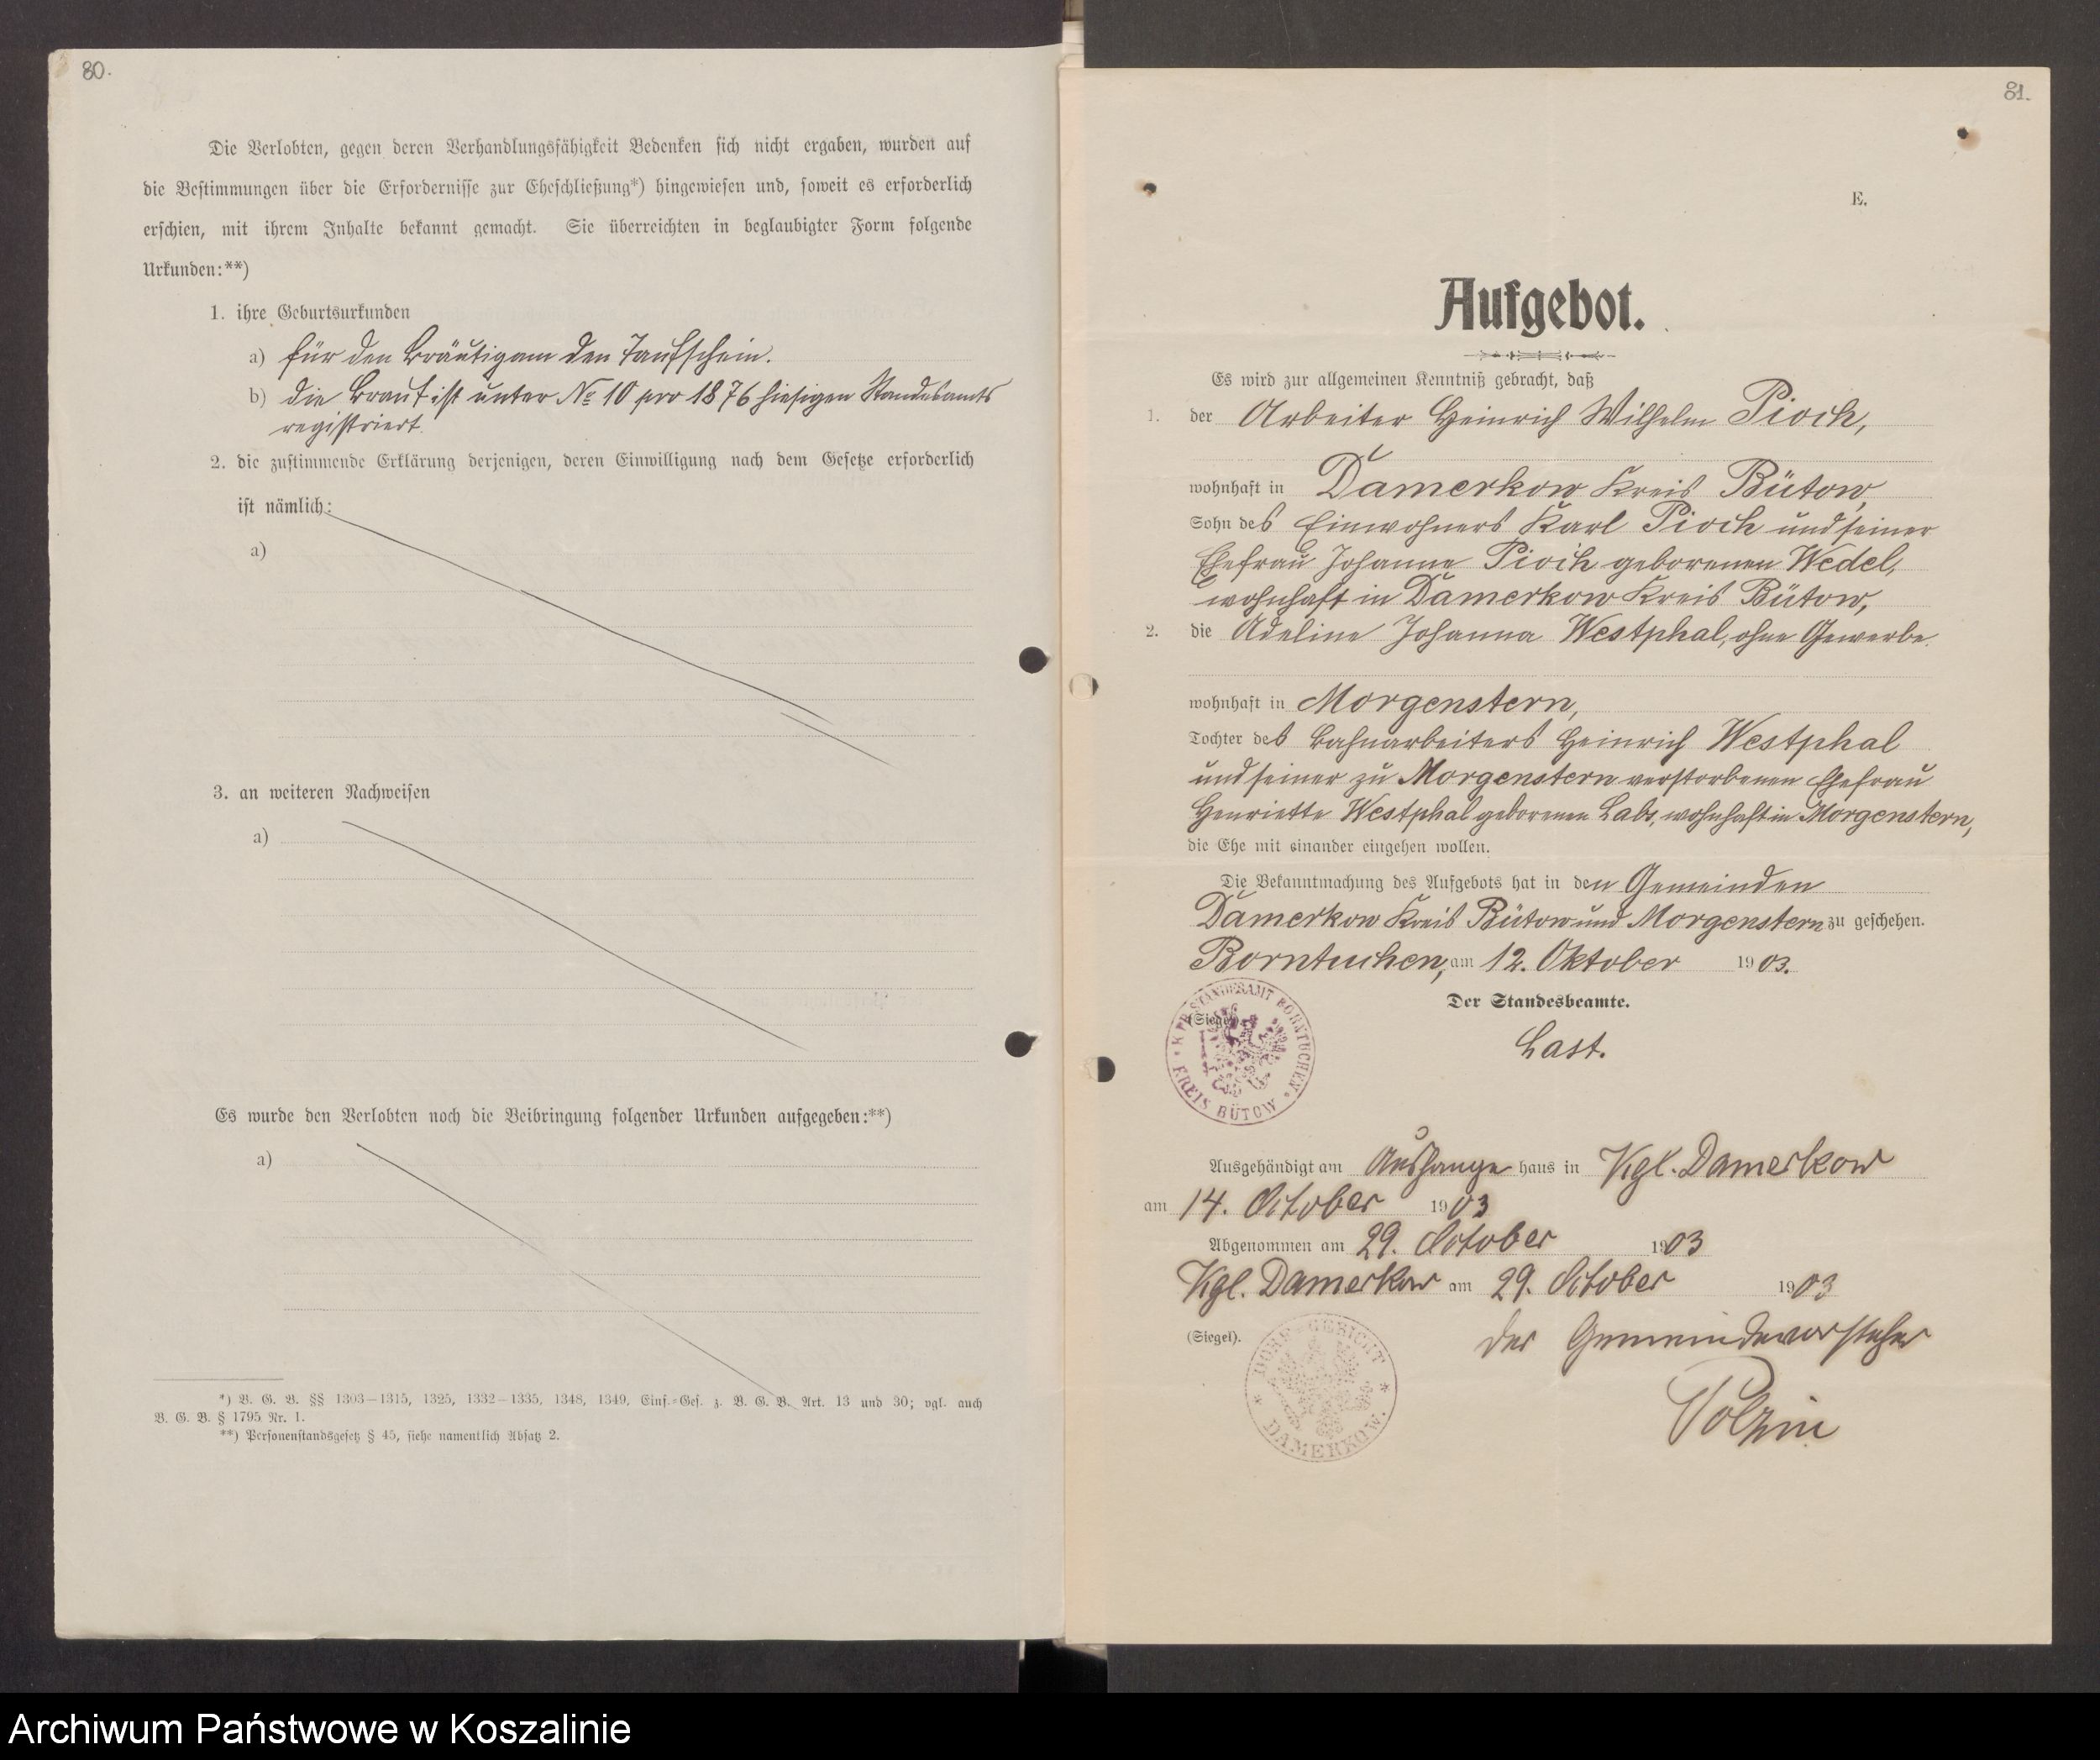 80.
Die Verlobten, gegen deren Verhandlungsfähigkeit Bedenken sich nicht ergaben, wurden auf
die Bestimmungen über die Erfordernisse zur Eheschließung*) hingewiesen und, soweit es erforderlich
erschien, mit ihrem Inhalte bekannt gemacht. Sie überreichten in beglaubigter Form folgende
Urkunden:**)
1. ihre Geburtsurkunden
a) für den Bräutigam den Taufschein.
b) die Braut ist unter No 10 pro 1876 hiesigen Standesamts
registriert.
2. die zustimmende Erklärung derjenigen, deren Einwilligung nach dem Gesetze erforderlich
ist nämlich:
a)
3. an weiteren Nachweisen
a)
Es wurde den Verlobten noch die Beibringung folgender Urkunden aufgegeben:**)
a)
*) B. G. B. §§ 1303—1315, 1325, 1332—1335, 1348, 1349, Einf.-Ges. z. B. G. B. Art. 13 und 30; vgl. auch
B. G. B. § 1795 Nr. 1.
**) Personenstandsgesetz § 45, siehe namentlich Absatz 2.
81.
E.
Aufgebot.
Es wird zur allgemeinen Kenntniß gebracht, daß
1. der Arbeiter Heinrich Wilhelm Pioch,
wohnhaft in Damerkow Kreis Bütow,
Sohn des Einwohners Karl Pioch und seiner
Ehefrau Johanne Pioch geborenen Wedel,
wohnhaft in Damerkow Kreis Bütow,
2. die Adeline Johanna Westphal, ohne Gewerbe
wohnhaft in Morgenstern,
Tochter des Bahnarbeiters Heinrich Westphal
und seiner zu Morgenstern verstorbenen Ehefrau
Henriette Westphal geborenen Labs, wohnhaft in Morgenstern,
die Ehe mit einander eingehen wollen.
Die Bekanntmachung des Aufgebots hat in den Gemeinden
Damerkow Kreis Bütow und Morgenstern zu geschehen.
Borntuchen, am 12. Oktober 1903.
Der Standesbeamte.
(Siegel).
KPR. STANDESAMT BORNTUCHEN. KREIS BÜTOW
Last.
Ausgehändigt am Aushange haus in Kgl. Damerkow
am 14. October 1903
Abgenommen am 29. October 1903
Kgl. Damerkow am 29. October 1903
(Siegel).
DORF-GERICHT * DAMERKOW. *
Der Gemeindevorsteher
Polzin
Archiwum Państwowe w Koszalinie